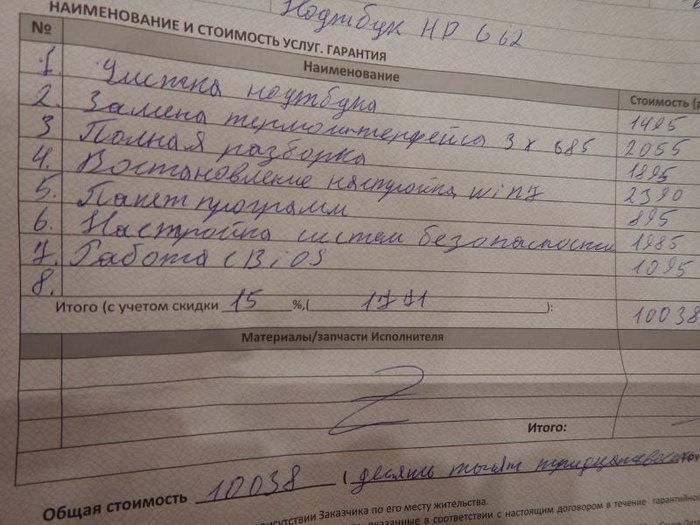 Ноутбук HP G62
НАИМЕНОВАНИЕ И СТОИМОСТЬ УСЛУГ. ГАРАНТИЯ
№ Наименование Стоимость (р
1. Чистка ноутбука 1495
2. Замена термоинтерфейса 3 х 685 2055
3 Полная разборка 1895
4. Востановление настройка win7 2390
5. Пакет программ 895
6. Настройка систем безопасности 1985
7. Работа с BiOS 1095
8.
Итого (с учетом скидки 15 %,( 1771 ): 10038
Материалы/запчасти Исполнителя
Итого:
Общая стоимость 10038 ( десять тысяч тридцать восемь
рисутствии Заказчика по его месту жительства.
оказанные в соответствии с настоящим договором в течение гарантийног